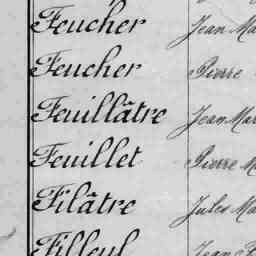 Feucher Jean Ma
Feucher Pierre
Feuillâtre Jean Mar
Feuillet Pierre M
Filâtre Jules Ma
Filleul Jean